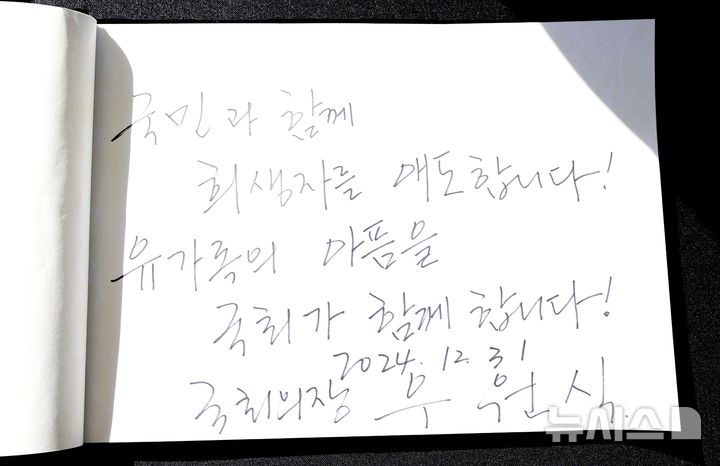 국민과 함께
희생자를 애도합니다!
유가족의 아픔을
국회가 함께 합니다!
2024. 12. 31
국회의장 우 원 식.
뉴시스